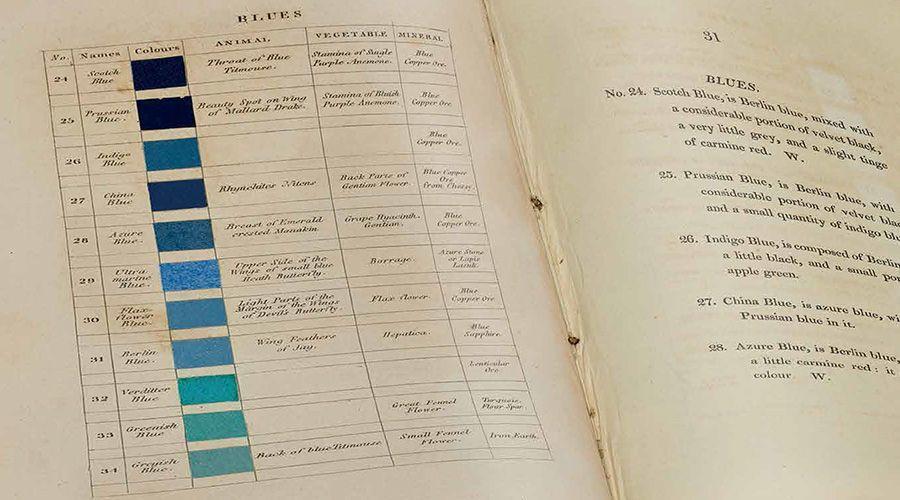 BLUES
No. Names Colours ANIMAL VEGETABLE MINERAL
24 Scotch Blue Throat of Blue Titmouse. Stamina of Single Purple Anemone. Blue Copper Ore
25 Prussian Blue. Beauty Spot on Wing of Mallard Drake. Stamina of Bluish Purple Anemone. Blue Copper Ore
26 Indigo Blue Blue Copper Ore.
27 China Blue Rhynchites Nitens Back Parts of Gentian Flower. Blue Copper Ore from Chessy.
28 Azure Blue. Breast of Emerald crested Manakin. Grape Hyacinth. Gentian. Blue Copper Ore.
29 Ultra marine Blue. Upper Side of the Wings of small blue Heath Butterfly. Borrage. Azure Stone or Lapis Lazuli.
30 Flax-flower Blue. Light Parts of the Margin of the Wings of Devil's Butterfly. Flax flower. Blue Copper Ore
31 Berlin Blue. Wing Feathers of Jay. Hepatica. Blue Sapphire.
32 Verditter Blue Lenticular Ore.
33 Greenish Blue Great Fennel Flower. Turquois. Flour Spar.
34 Greyish Blue. Back of blue Titmouse Small Fennel Flower. Iron Earth.
31
BLUES.
No. 24. Scotch Blue, is Berlin blue, mixed with
a considerable portion of velvet black,
a very little grey, and a slight tinge
of carmine red. W.
25. Prussian Blue, is Berlin blue, with
considerable portion of velvet blac
and a small quantity of indigo blu
26. Indigo Blue, is composed of Berlin
a little black, and a small por
apple green.
27. China Blue, is azure blue, wi
Prussian blue in it.
28. Azure Blue, is Berlin blue,
a little carmine red : it
colour W.